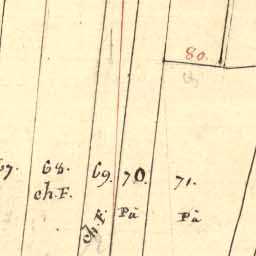 80.
67.
68.
ch. F.
69.
ch. F.
70.
Pä
71.
Pä